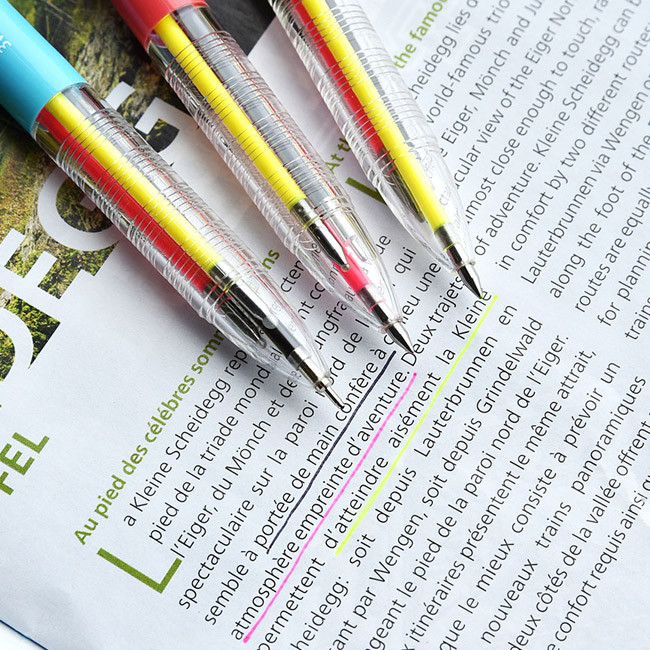 FEL
Au pied des célèbres som
La Kleine Scheidegg rep
pied de la triade mondial
l'Eiger, du Mönch et de
spectaculaire sur la paroi
semble à portée de main confère à
qui
lieu une
atmosphère empreinte d'aventure. Deux trajets
permettent d'atteindre aisément la Kleine
heidegg: soit depuis Lauterbrunnen en
ant par Wengen, soit depuis Grindelwald
geant le pied de la paroi nord de l'Eiger.
x itinéraires présentent le même attrait,
que le mieux consiste à prévoir un
nouveaux trains panoramiques
deux côtés de la vallée offrent
e confort requis ainsi qu
the famou
At th
heidegg lies
World-famous trio
Eiger, Mönch and Ju
cular view of the Eiger Nor
most close enough to touch, ra
of adventure. Kleine Scheidegg can b
in comfort by two different routes
Lauterbrunnen via Wengen o
along the foot of the
routes are equall
for planning
trains